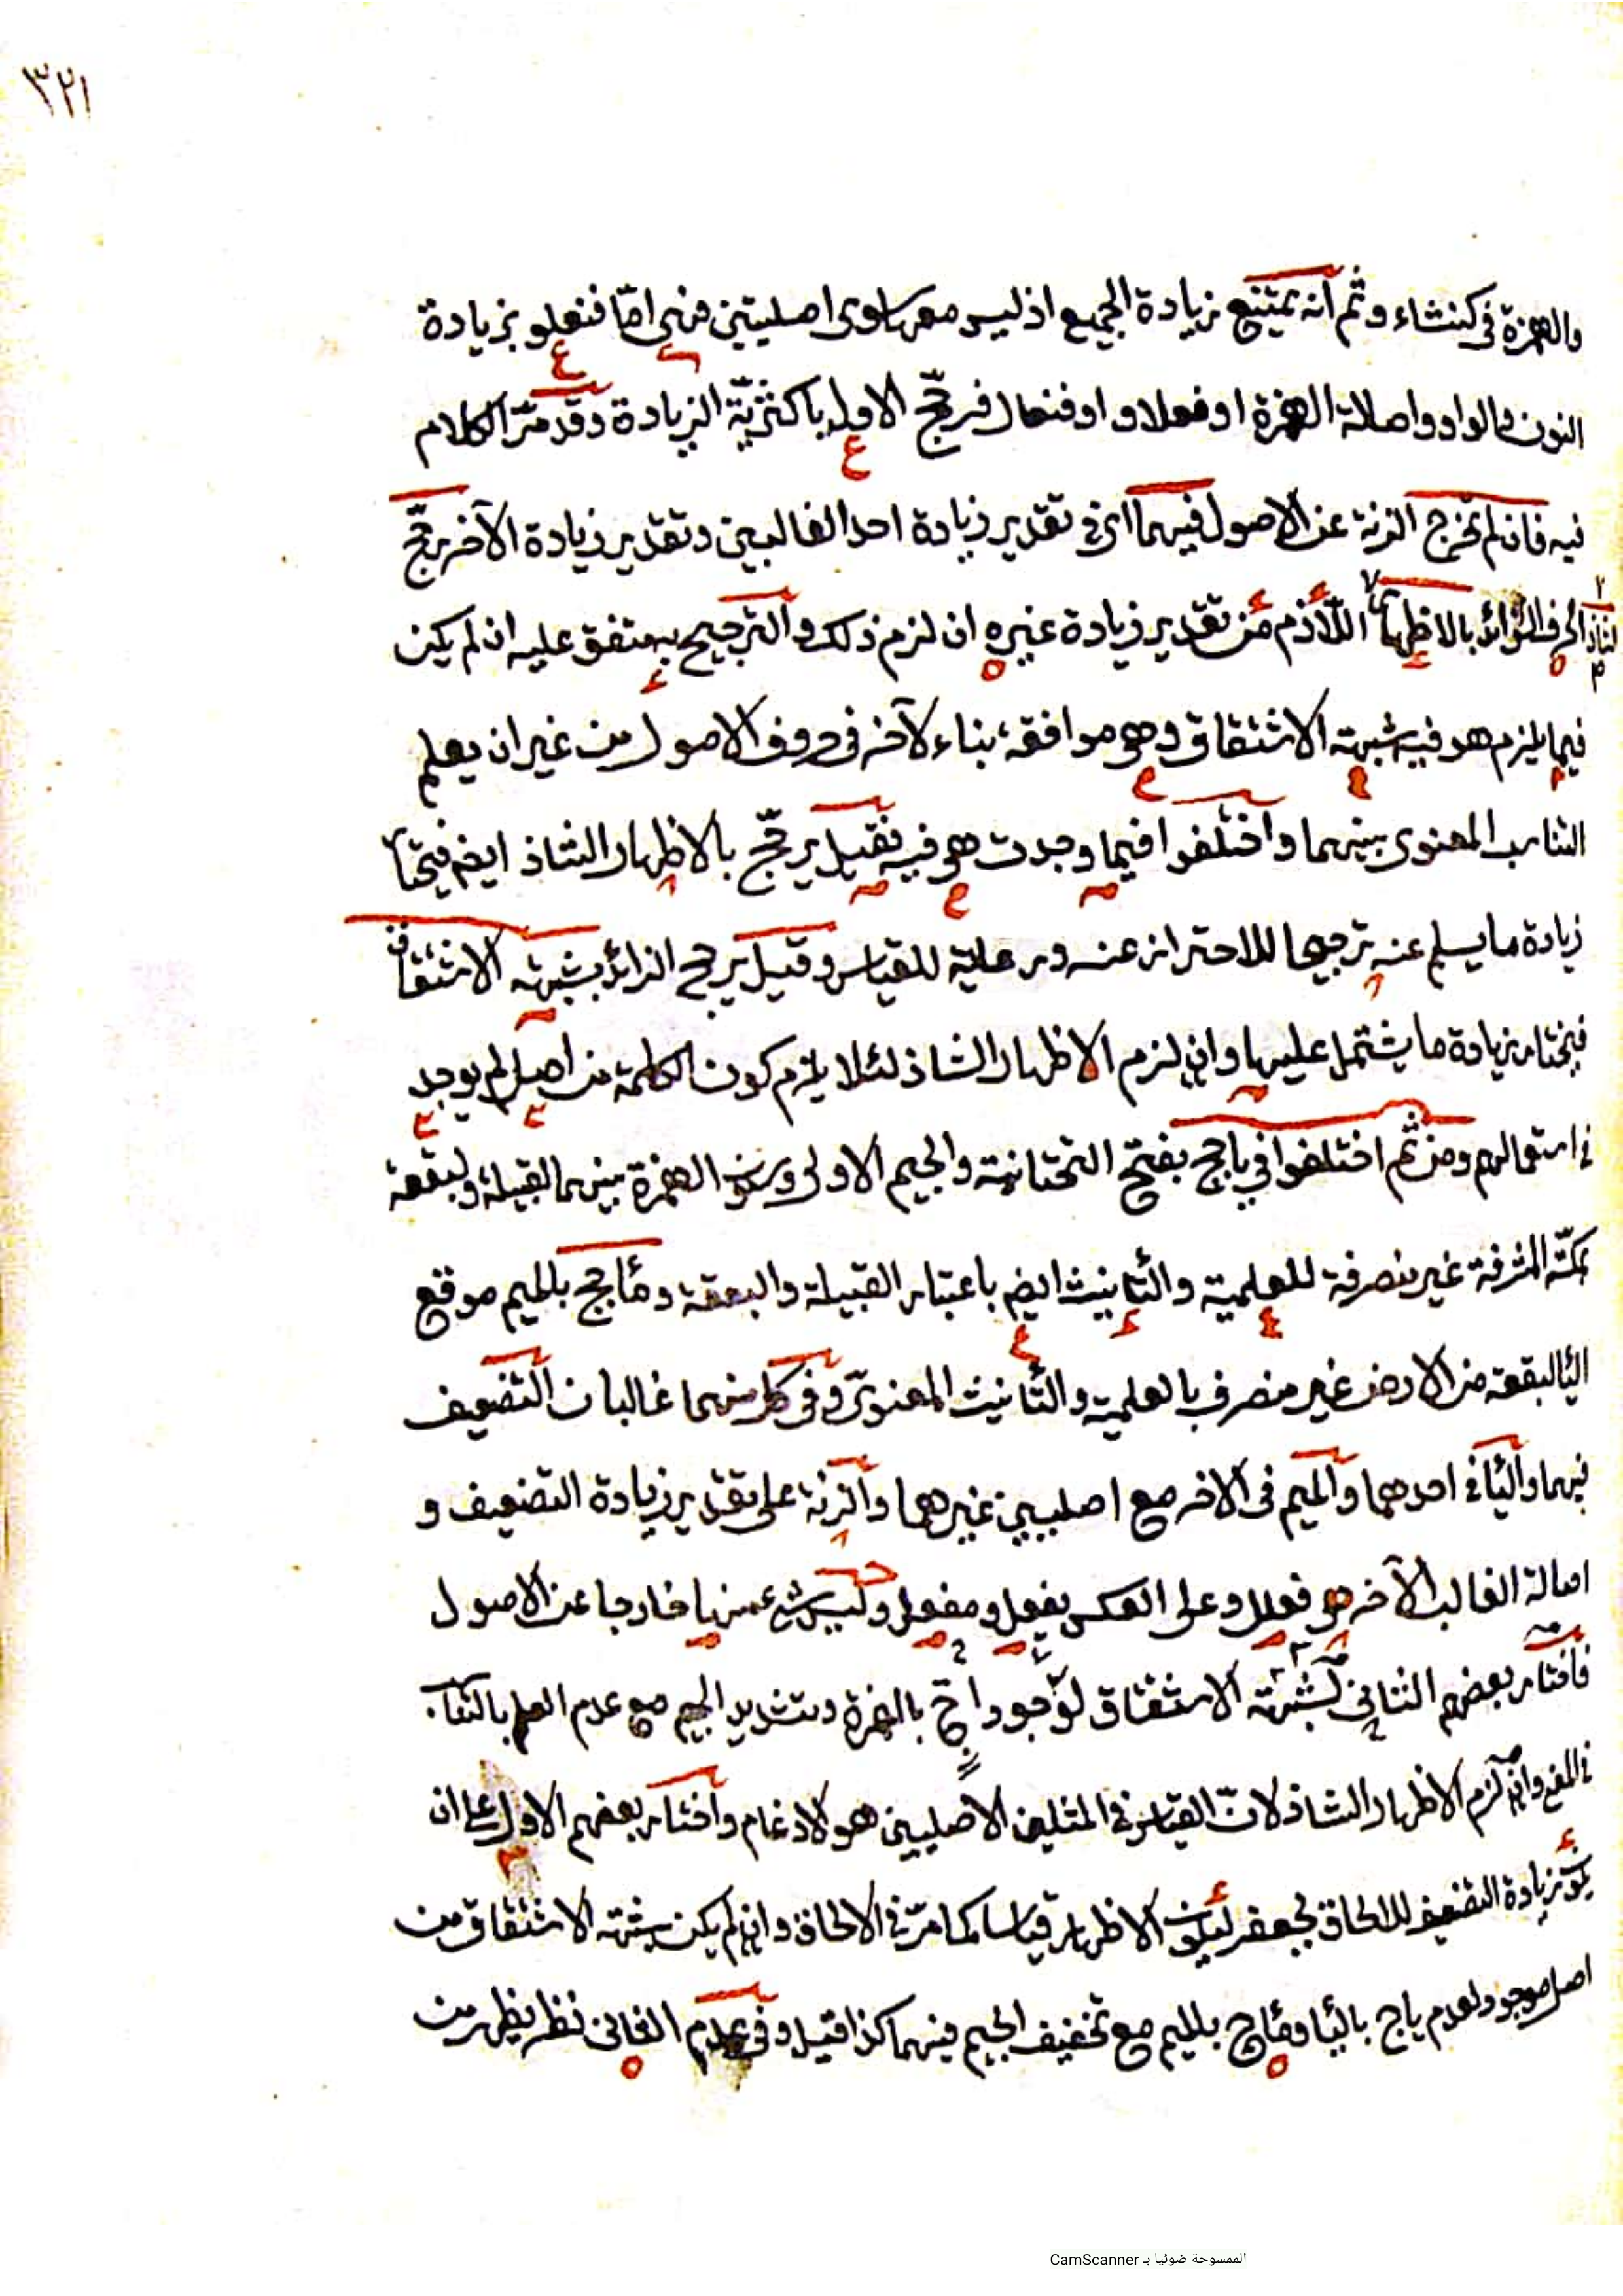 ٣٢١
والهمزة في كنثاء و ثم انه يمتنع زيادة الجميع اذ ليس معها سوى اصليتين فهى امّا فنعلو بزيادة
النون والواو واصالة الهمزة او فعلاو او فنعال فرجّح الاول باكثريّة الزيادة وقد مرّ الكلام
فيه فان لم تخرج الزنة عن الاصول فيهما اى في تقدير زيادة احد الغالبين وتقدير زيادة الآخر رجّح
الحرف الزائد بالاظهار الشاذ اللازم من تقدير زيادة غيره ان لزم ذلك والترجيح به متفق عليه ان لم يكن
فيما يلزم هو فيه شبهة الاشتقاق وهي موافقة بناء لآخر في حروف الاصول من غير ان يعلم
التناسب المعنوى بينهما واختلفوا فيما وجدت هي فيه فقيل يرجّح بالاظهار الشاذ ايضا فيختار
زيادة ما يسلم عنه ترجيحا للاحتراز عنه ورعاية للقياس وقيل يرجح الزائد بشبهة الاشتقاق
فيختار زيادة ما يشتمل عليها وان لزم الاظهار الشاذ لئلا يلزم كون الكلمة من اصل لم يوجد
في استعمالهم ومن ثم اختلفوا في ياجج بفتح التحتانية والجيم الاولى وسكون الهمزة بينهما لقبيلة ولبقعة
بمكّة المشرفة غير منصرفة للعلمية والتأنيث ايضا باعتبار القبيلة والبقعة ومأجج بالميم موقع
البقعة من الارض غير منصرف بالعلمية والتأنيث المعنوىّ وفى كل منهما غالبان التضعيف
فيهما والياء في احدهما والميم فى الاخر مع اصليين غيرهما والزنة على تقدير زيادة التضعيف و
اصالة الغالب الآخر هو فعلل وعلى العكس يفعل ومفعل وليس شئ منها خارجا عن الاصول
فاختار بعضهم الثاني لشبهة الاشتقاق لوجود اجّ بالهمزة وتشديد الجيم مع عدم العلم بالتناسب
في المعنى وان لزم الاظهار الشاذ لانّ القياس في المثلين الاصليين هو الادغام واختار بعضهم الاول على ان
يكون زيادة التضعيف للالحاق بجعفر ليكون الاظهار قياسا كما مرّ في الالحاق وان لم يكن شبهة الاشتقاق من
اصل موجود لعدم ياج بالياء ومأج بالميم مع تخفيف الجيم فيهما كذا قيل وفى عدم الثانى نظر يظهر من
الممسوحة ضوئيا بـ CamScanner